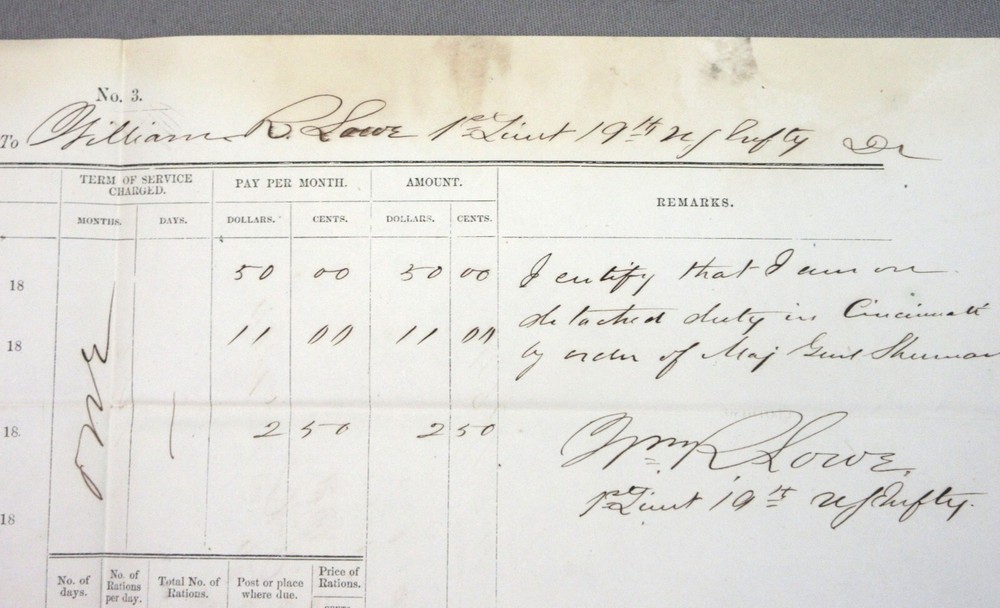 No. 3.
To William R. Lowe 1st Lieut 19th U S Infty Dr
TERM OF SERVICE CHARGED. PAY PER MONTH. AMOUNT. REMARKS.
MONTHS. DAYS. DOLLARS. CENTS. DOLLARS. CENTS.
18 50 00 50 00 I certify that I am on
detached duty in Cincinnati
18 11 00 11 00 by order of Maj Genl Sherman
18 one 2 50 2 50
Wm R Lowe.
1st Lieut 19th U S Infty.
18
No. of days. No. of Rations per day. Total No. of Rations. Post or place where due. Price of Rations.
CENTS.